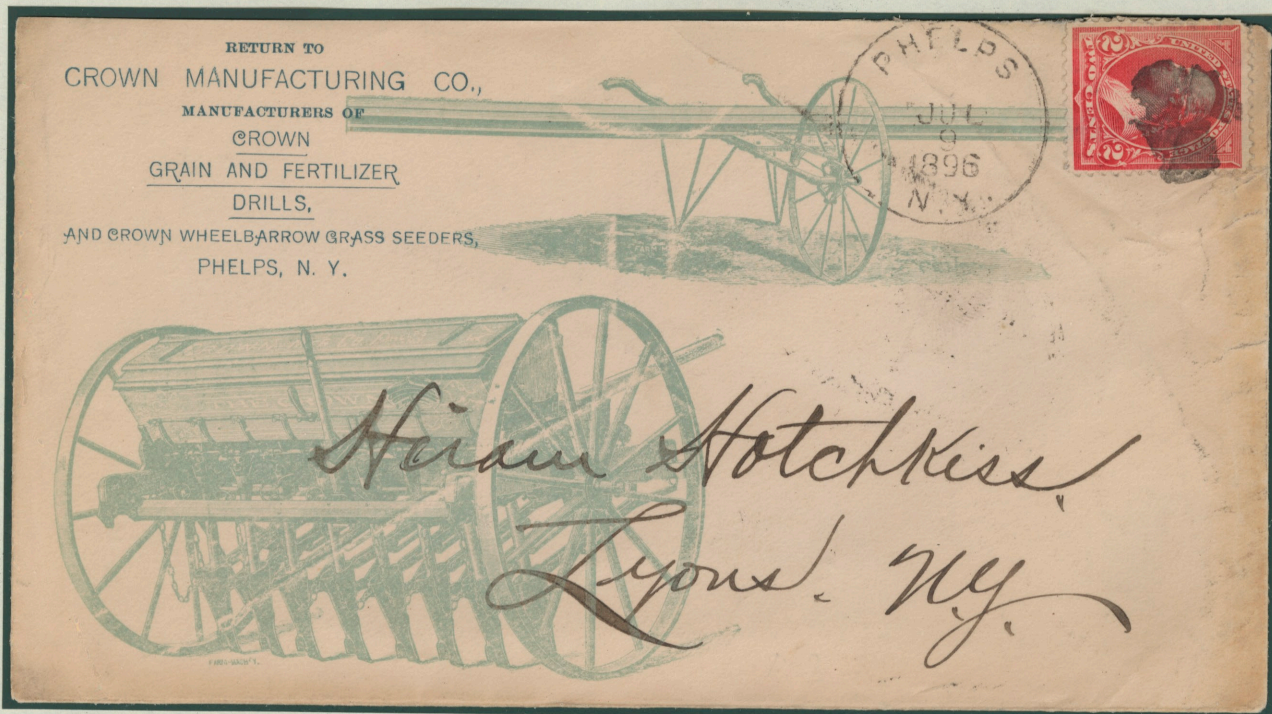 RETURN TO
CROWN MANUFACTURING CO.,
MANUFACTURERS OF
CROWN
GRAIN AND FERTILIZER
DRILLS,
AND CROWN WHEELBARROW GRASS SEEDERS,
PHELPS, N. Y.
PHELPS
JUL
9
1896
N.Y.
2 TWO CENTS 2
UNITED STATES POSTAGE
Hiram Hotchkiss.
Lyons. N.Y.